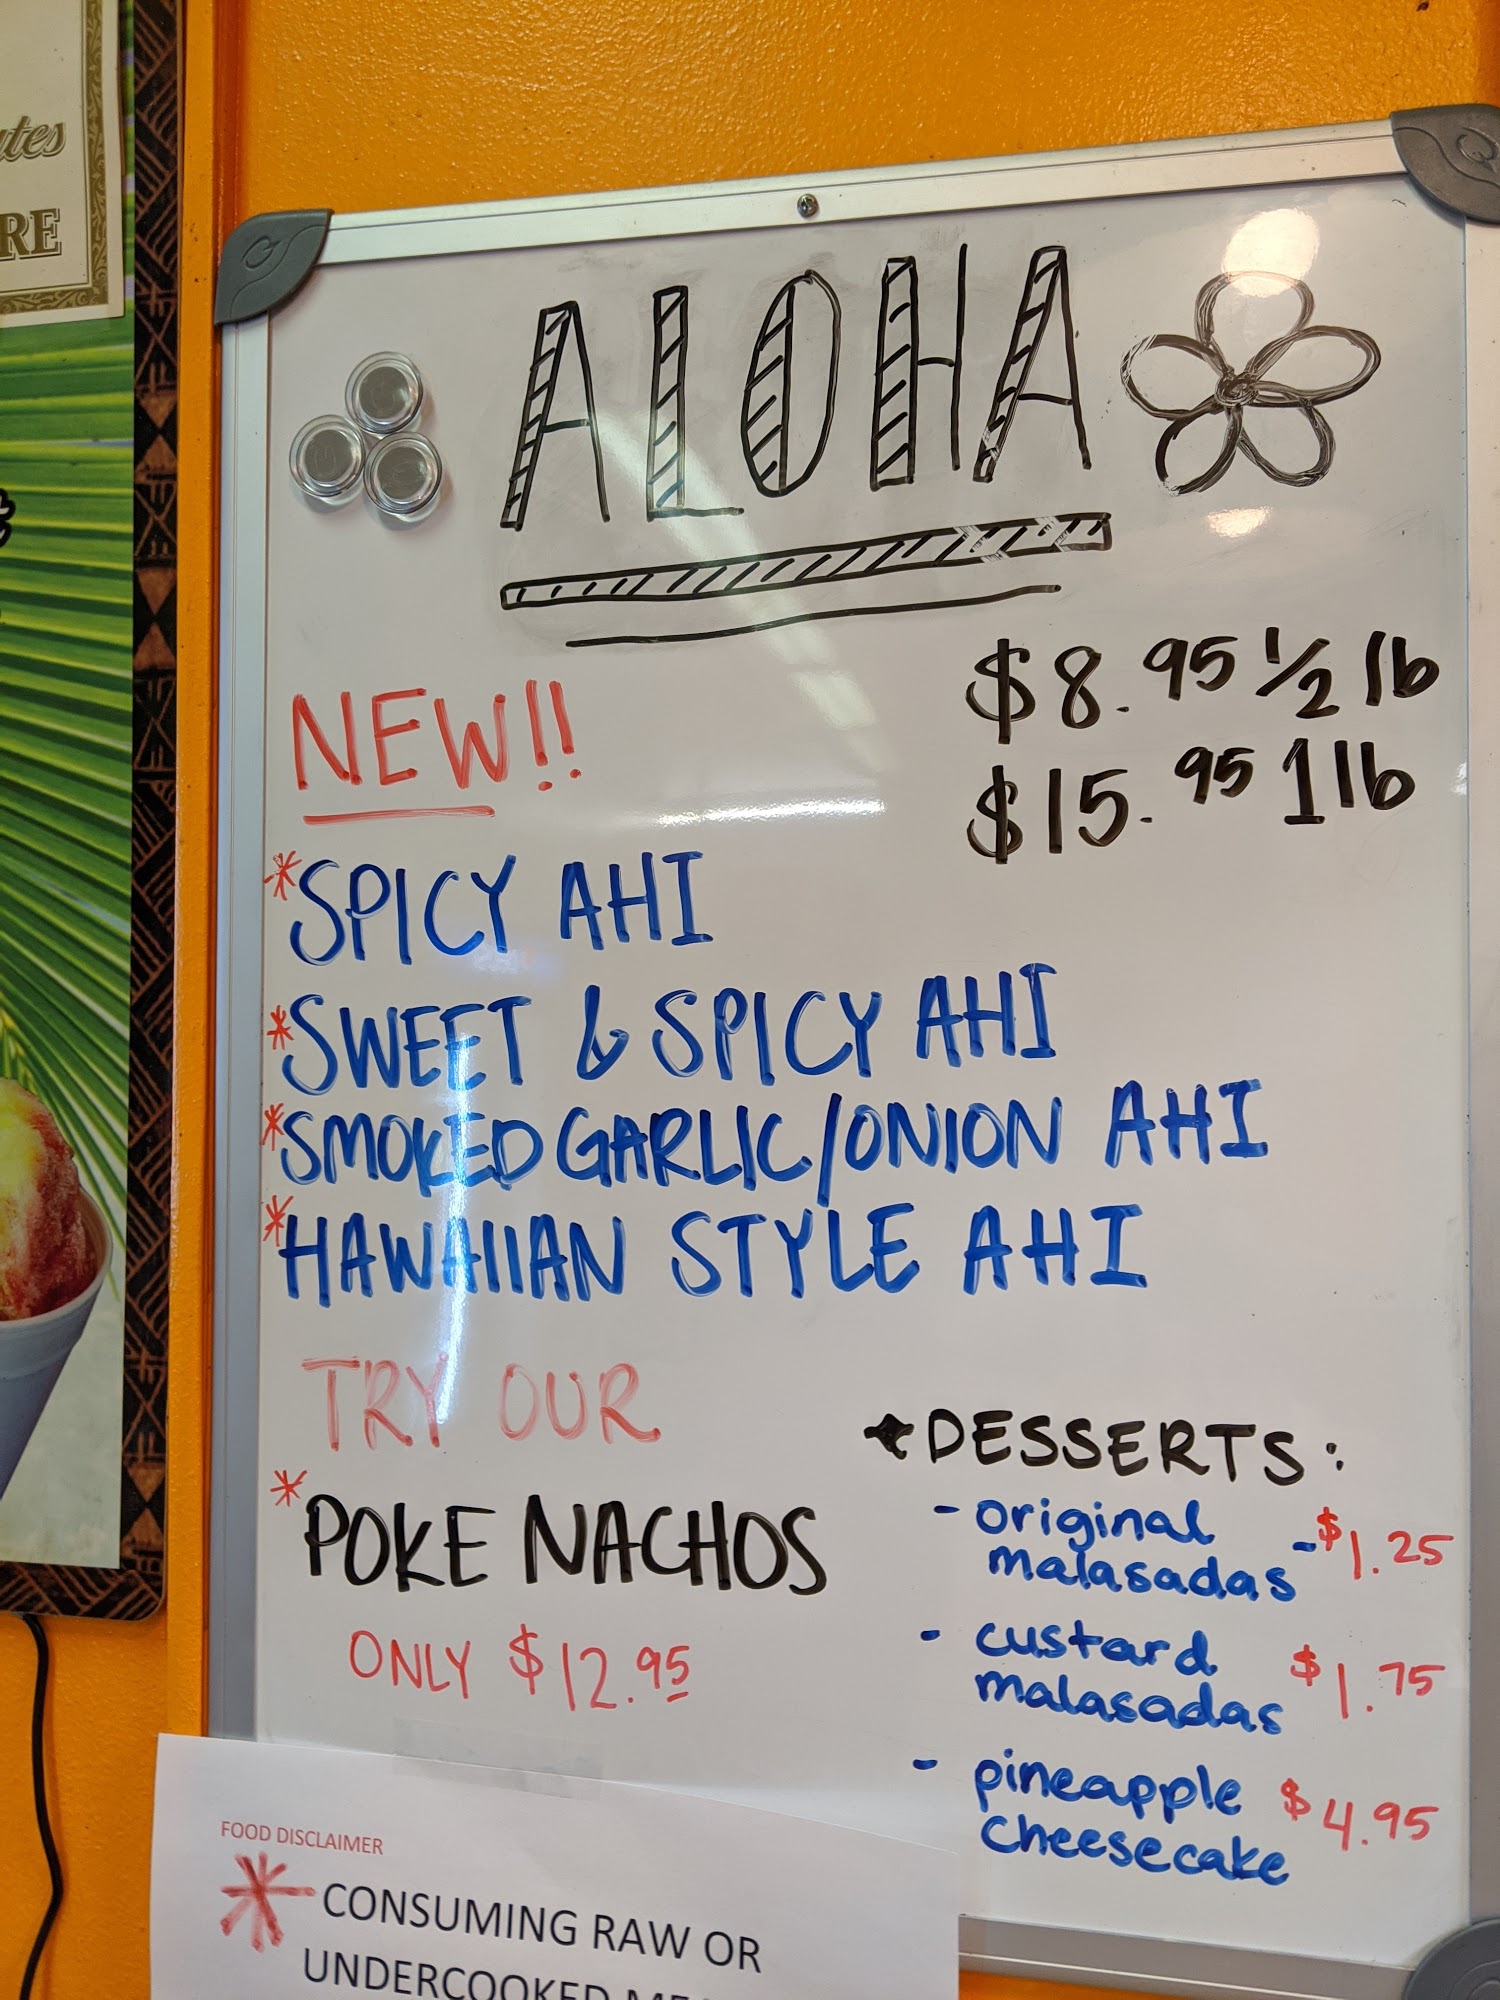 utes
RE
ALOHA
$8.95 1/2 lb
$15.95 1 lb
NEW!!
*SPICY AHI
*SWEET & SPICY AHI
*SMOKED GARLIC/ONION AHI
*HAWAIIAN STYLE AHI
TRY OUR
*POKE NACHOS
ONLY $12.95
DESSERTS:
- original
malasadas - $1.25
- custard
malasadas $1.75
- pineapple
cheesecake $4.95
FOOD DISCLAIMER
* CONSUMING RAW OR
UNDERCOOKED